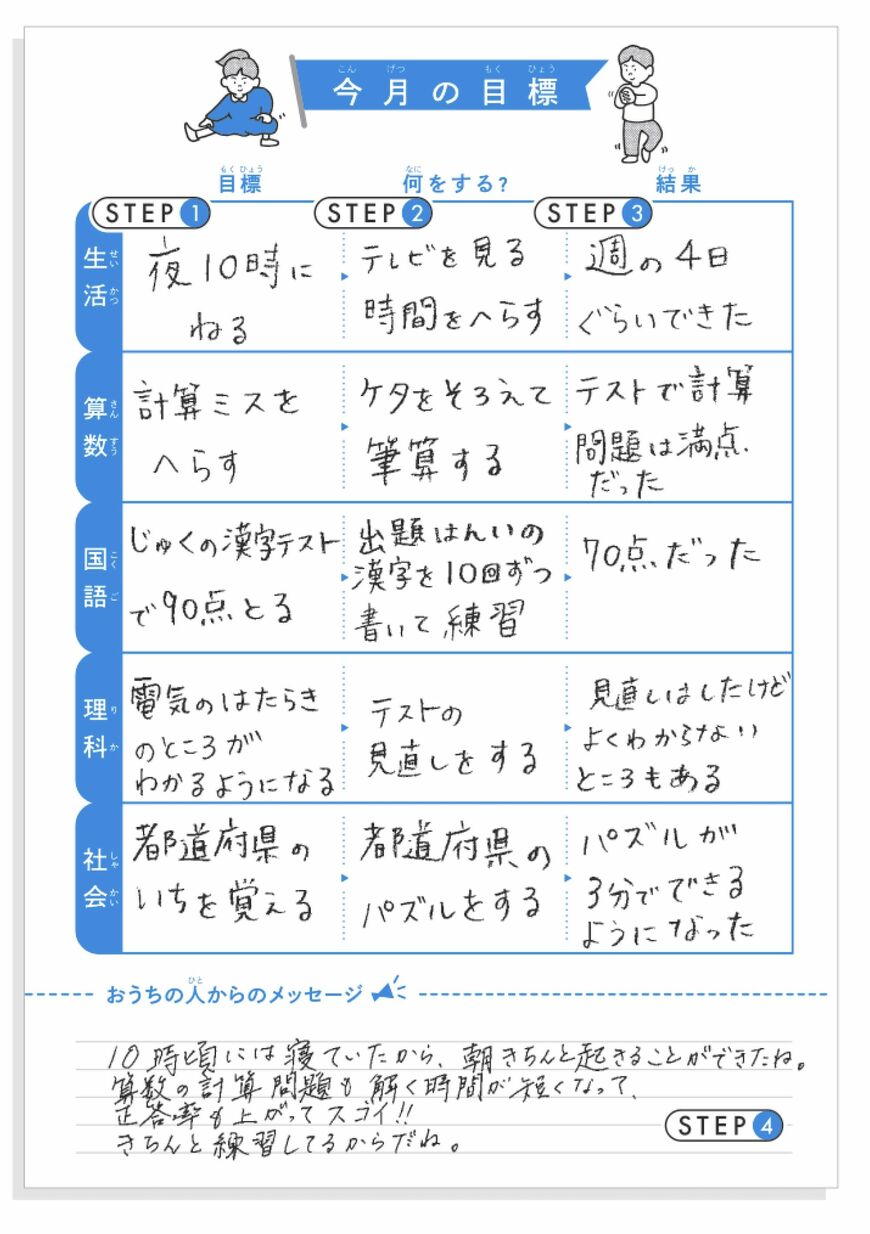 今月の目標
目標
何をする?
結果
STEP 1
STEP 2
STEP 3
生活
夜10時に
ねる
テレビを見る
時間をへらす
週の4日
ぐらいできた
算数
計算ミスを
へらす
ケタをそろえて
筆算する
テストで計算
問題は満点
だった
国語
じゅくの漢字テスト
で90点とる
出題はんいの
漢字を10回ずつ
書いて練習
70点だった
理科
電気のはたらき
のところが
わかるようになる
テストの
見直しをする
見直しはしたけど
よくわからない
ところもある
社会
都道府県の
いちを覚える
都道府県の
パズルをする
パズルが
3分でできる
ようになった
おうちの人からのメッセージ
10時頃には寝ていたから、朝きちんと起きることができたね。
算数の計算問題も解く時間が短くなって、
正答率も上がってスゴイ!!
きちんと練習してるからだね。
STEP 4